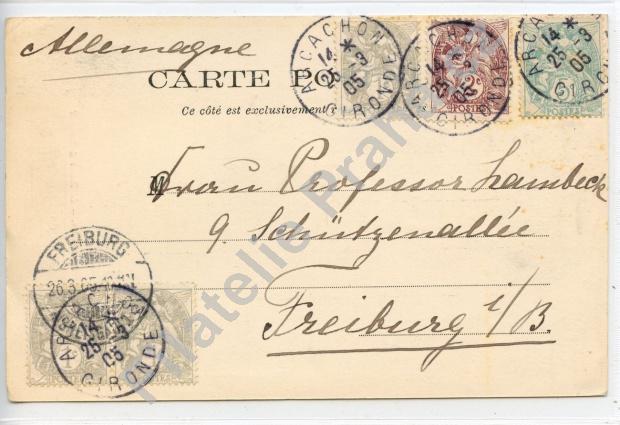 Allemagne
CARTE PO
Ce côté est exclusivement r
ARCACHON
14 *
25 -3
05
GIRONDE
ARCACHON
14 *
25 -3
05
GIRONDE
2c
POSTES
ARCACHON
14 *
25 -3
05
GIRONDE
5c
M
Frau Professor Lambeck
9 Schützenallée
Freiburg i/B.
FREIBURG
26.3.05
C
14
25 -3
05
GIRONDE
Philatelie Prahl